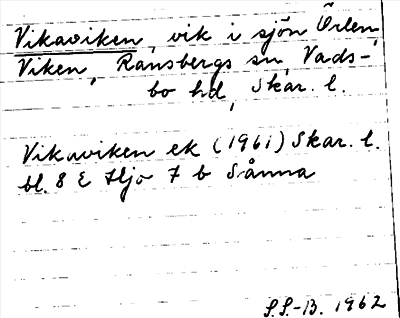 Vikaviken, vik i sjön Örlen,
Viken, Ransbergs sn, Vads-
bo hd, Skar. l.
Vikaviken ek (1961) Skar. l.
bl. 8 E Hjo 7 b Sånna
S.S.-B. 1962